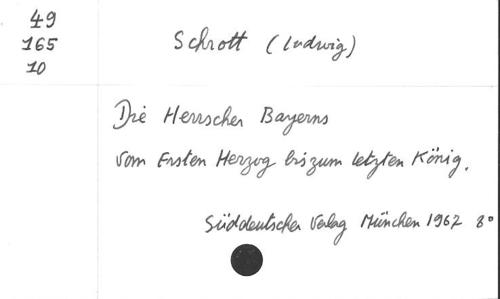 49
165
10
Schrott (Ludwig)
Die Herrscher Bayerns
vom Ersten Herzog bis zum letzten König.
Süddeutscher Verlag München 1967 8°